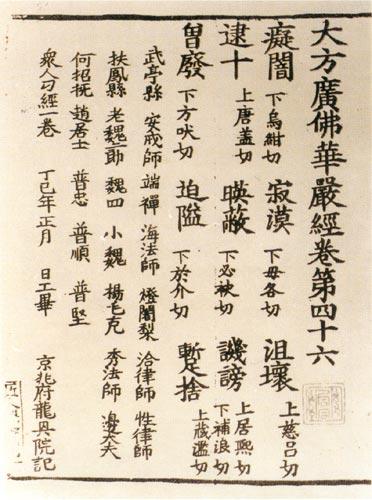 大方廣佛華嚴經卷第四十六
癡闇 下烏紺切 寂漠 下毋各切 沮壞 上慈呂切
逮十 上唐盖切 暎蔽 下必袂切 譏謗 上居熙切 下補浪切
曽廢 下方吠切 迫隘 下於介切 蹔捨 上蔵濫切
武亭縣 安戒師 端禪 海法師 燈闍梨 洽律師 性律師
扶鳳縣 老魏二郎 魏四 小魏 楊七克 秀法師 邊大夫
何招撫 趙居士 普忠 普順 普堅
衆人刁經一卷 丁巳年正月 日工畢 京兆府龍興院記